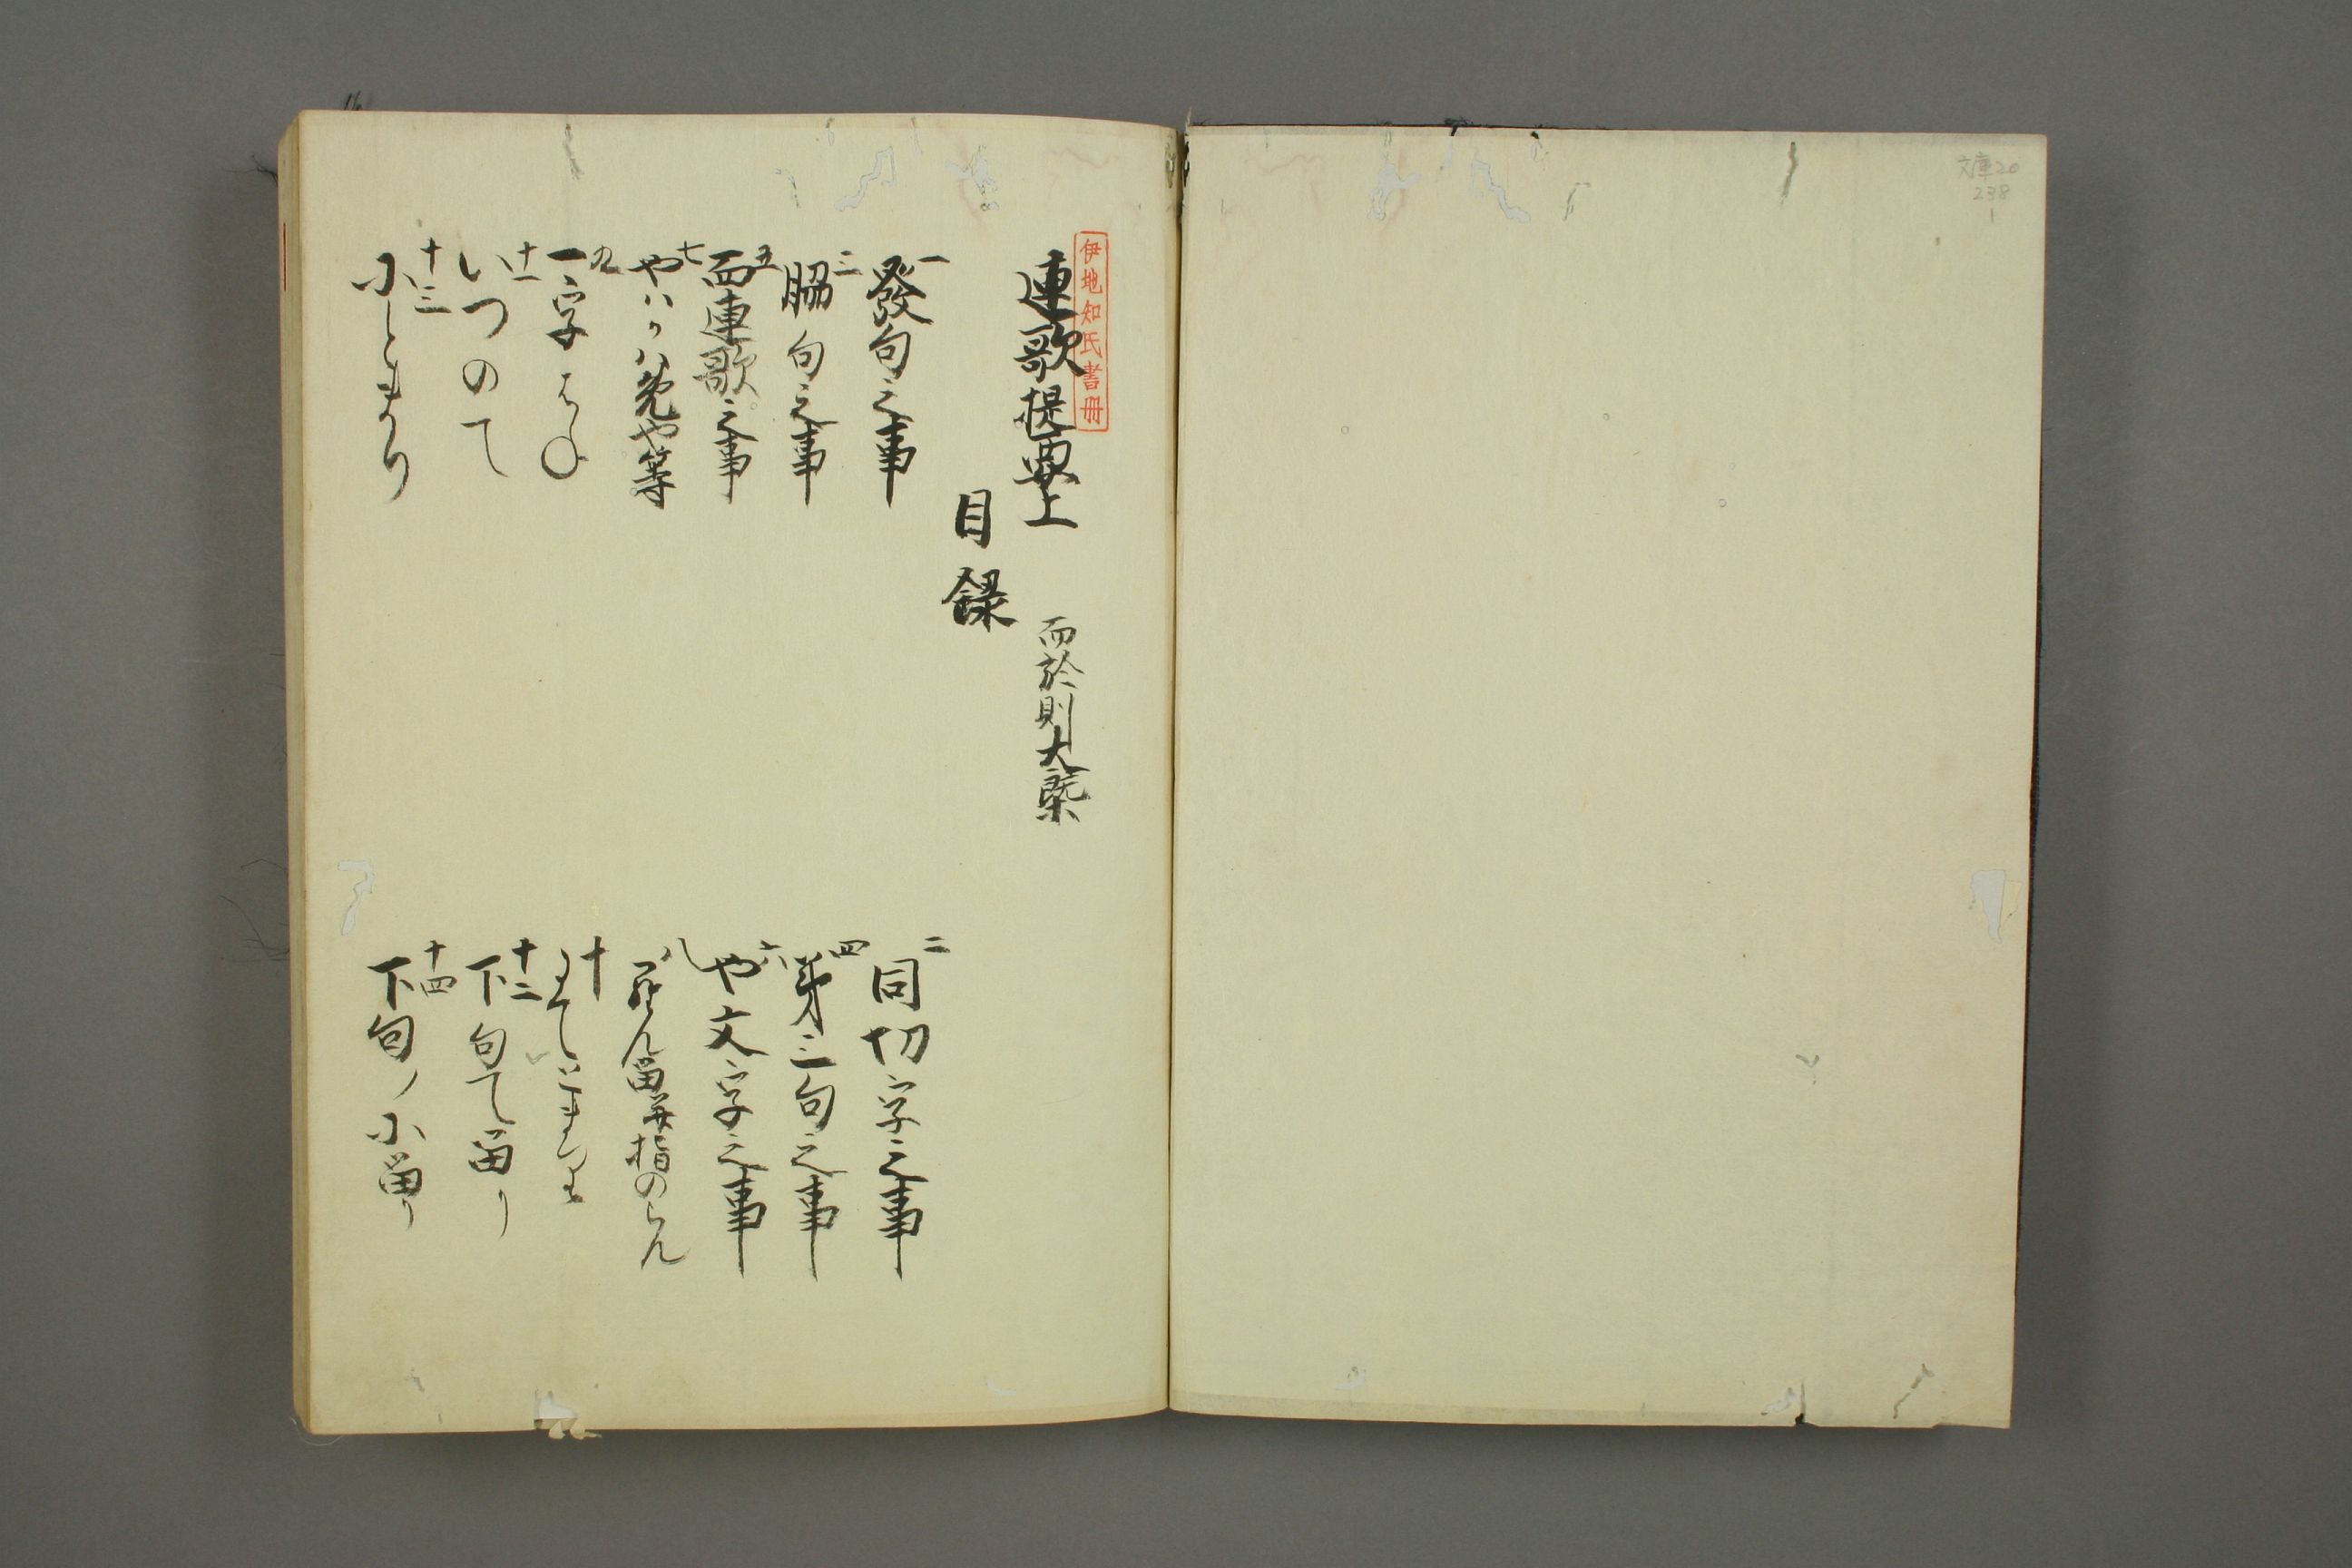 文庫20
238
1
伊地知氏書冊
連歌提要上
而於則大槩
目録
一
發句之事
二
同切字之事
三
脇句之事
四
第三句之事
五
面連歌之事
六
や文字之事
七
やハかハ免や等
八
らん留并指のらん
九
一字はね
十
十一
いつのて
十二
下句て留り
十三
にとまり
十四
下句ノに留り